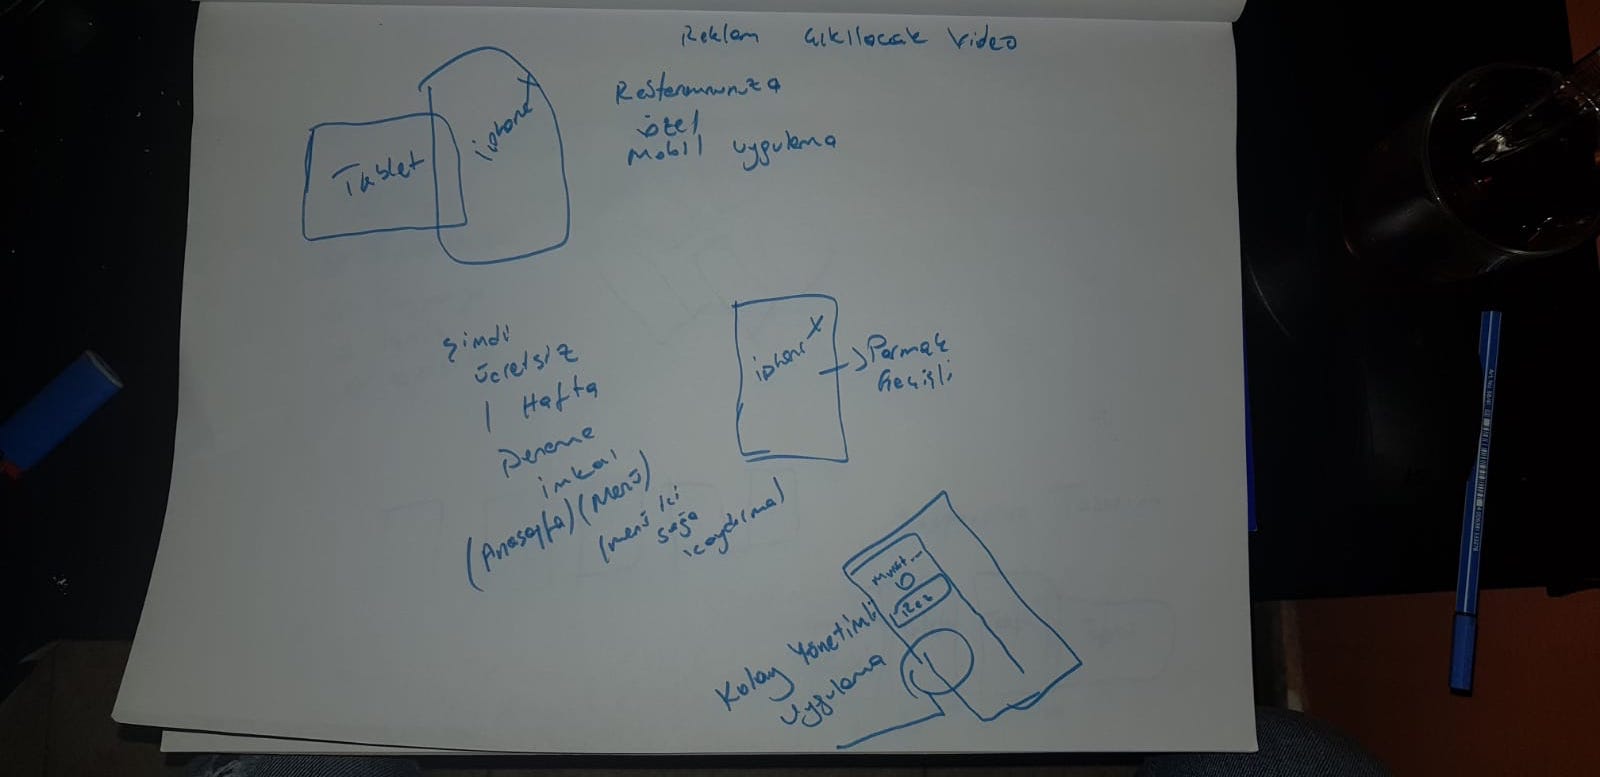 Reklam Çıkılacak Video
Restoranınıza
özel
Mobil uygulama
Tablet
iphone X
Şimdi
ücretsiz
1 Hafta
Deneme
imkanı
(Anasayfa) (Menü)
(menü içi
sağa
kaydırma)
iphone X
Parmak
Geçişli
Rez
Kolay Yönetimli
uygulama